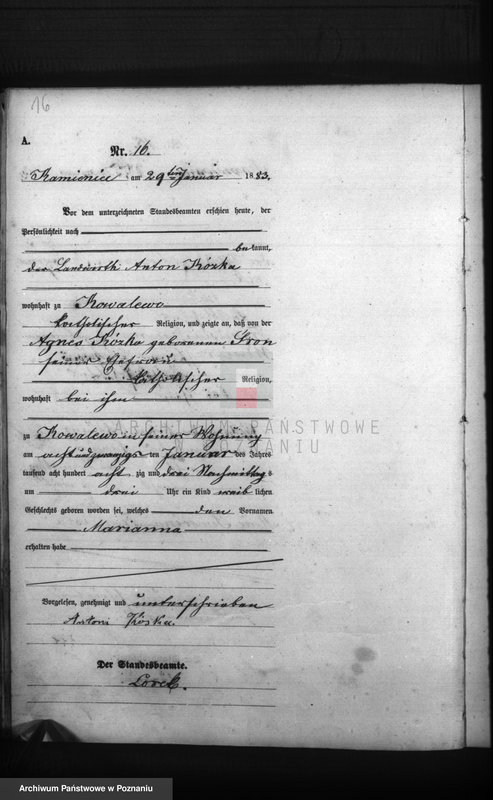 16
A.
Nr. 16.
Kamieniec am 29ten Januar 1883.
Vor dem unterzeichneten Standesbeamten erschien heute, der
Persönlichkeit nach
be kannt,
der Landwirth Anton Kózka
wohnhaft zu Kowalewo
katholischer Religion, und zeigte an, daß von der
Agnes Kózka geborenen Gron
seiner Ehefrau
katholischer Religion,
wohnhaft bei ihm
ARCHIWUM PAŃSTWOWE
W POZNANIU
zu Kowalewo in seiner Wohnung
am achtundzwanzigsten Januar des Jahres
tausend acht hundert acht zig und drei Nachmittags
um drei Uhr ein Kind weib lichen
Geschlechts geboren worden sei, welches den Vornamen
Marianna
erhalten habe
Vorgelesen, genehmigt und unterschrieben
Antoni Kózka.
Der Standesbeamte.
Lorek.
Archiwum Państwowe w Poznaniu